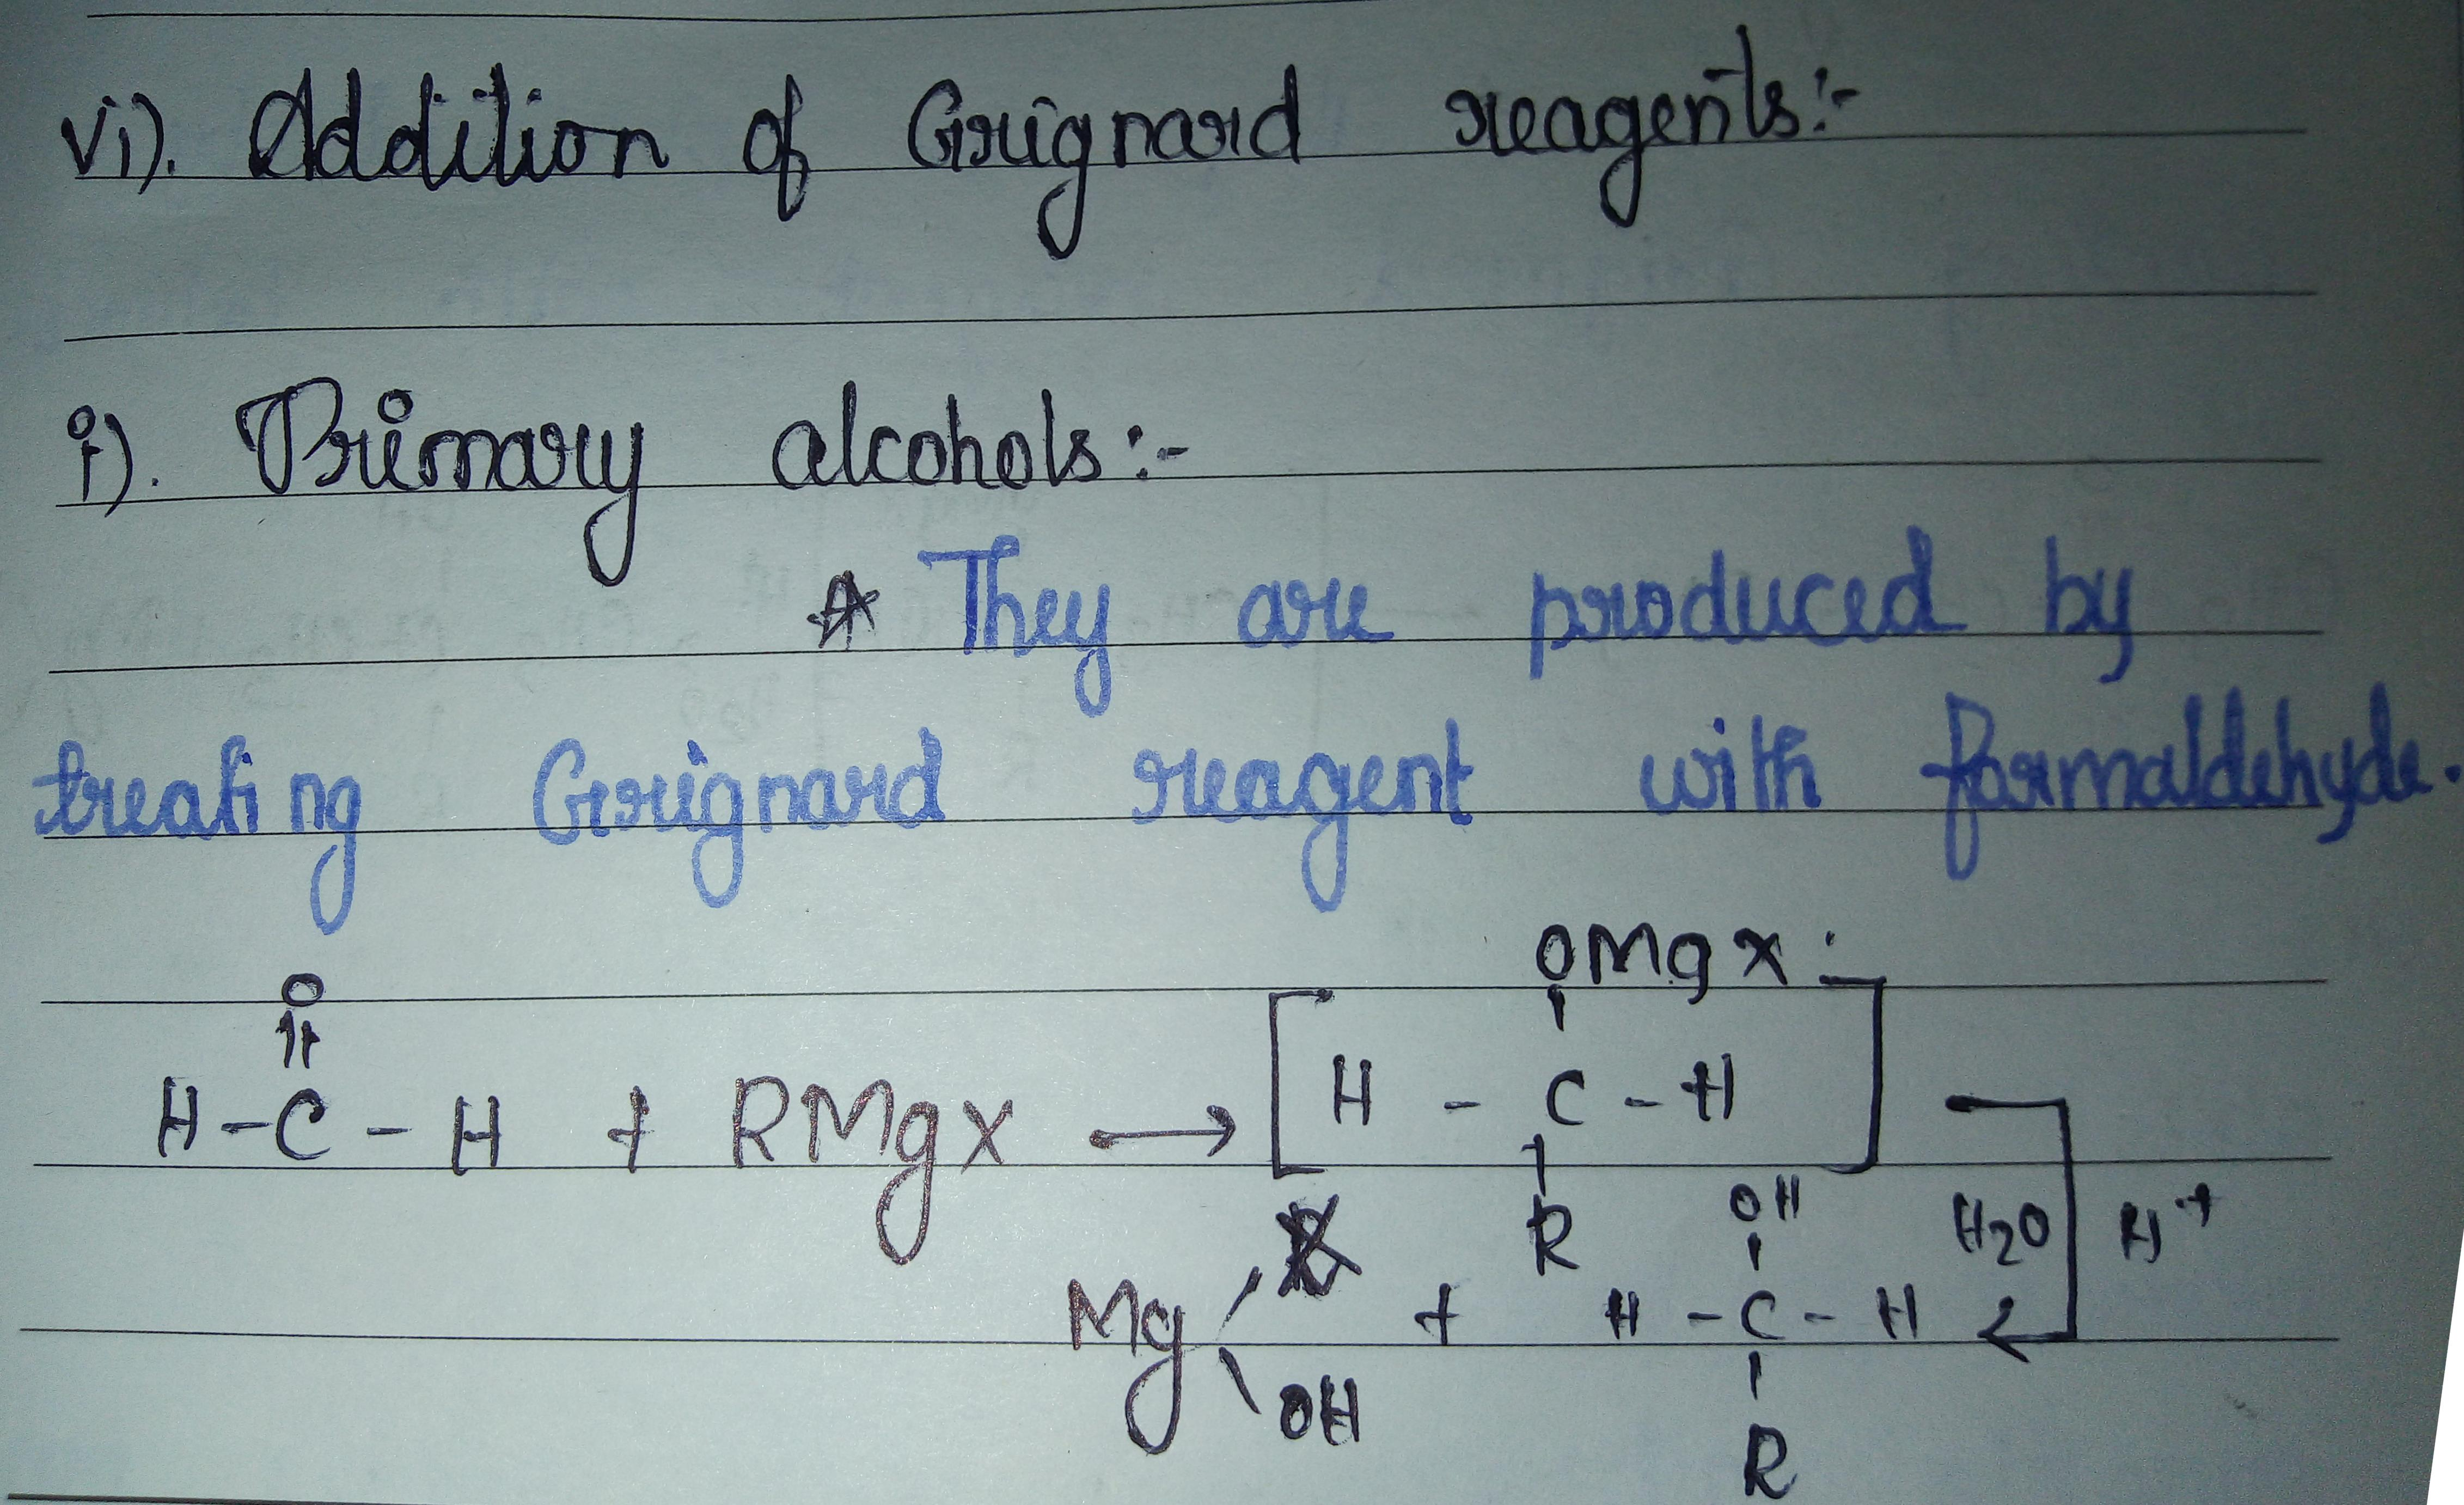 vi). Addition of Grignard reagents:-
i). Primary alcohols:-
☆ They are produced by
treating Grignard reagent with formaldehyde.
O OMgX
||
H-C-H + RMgX → [H - C - H]
R
OH H2O H+
Mg X + H - C - H
OH
R